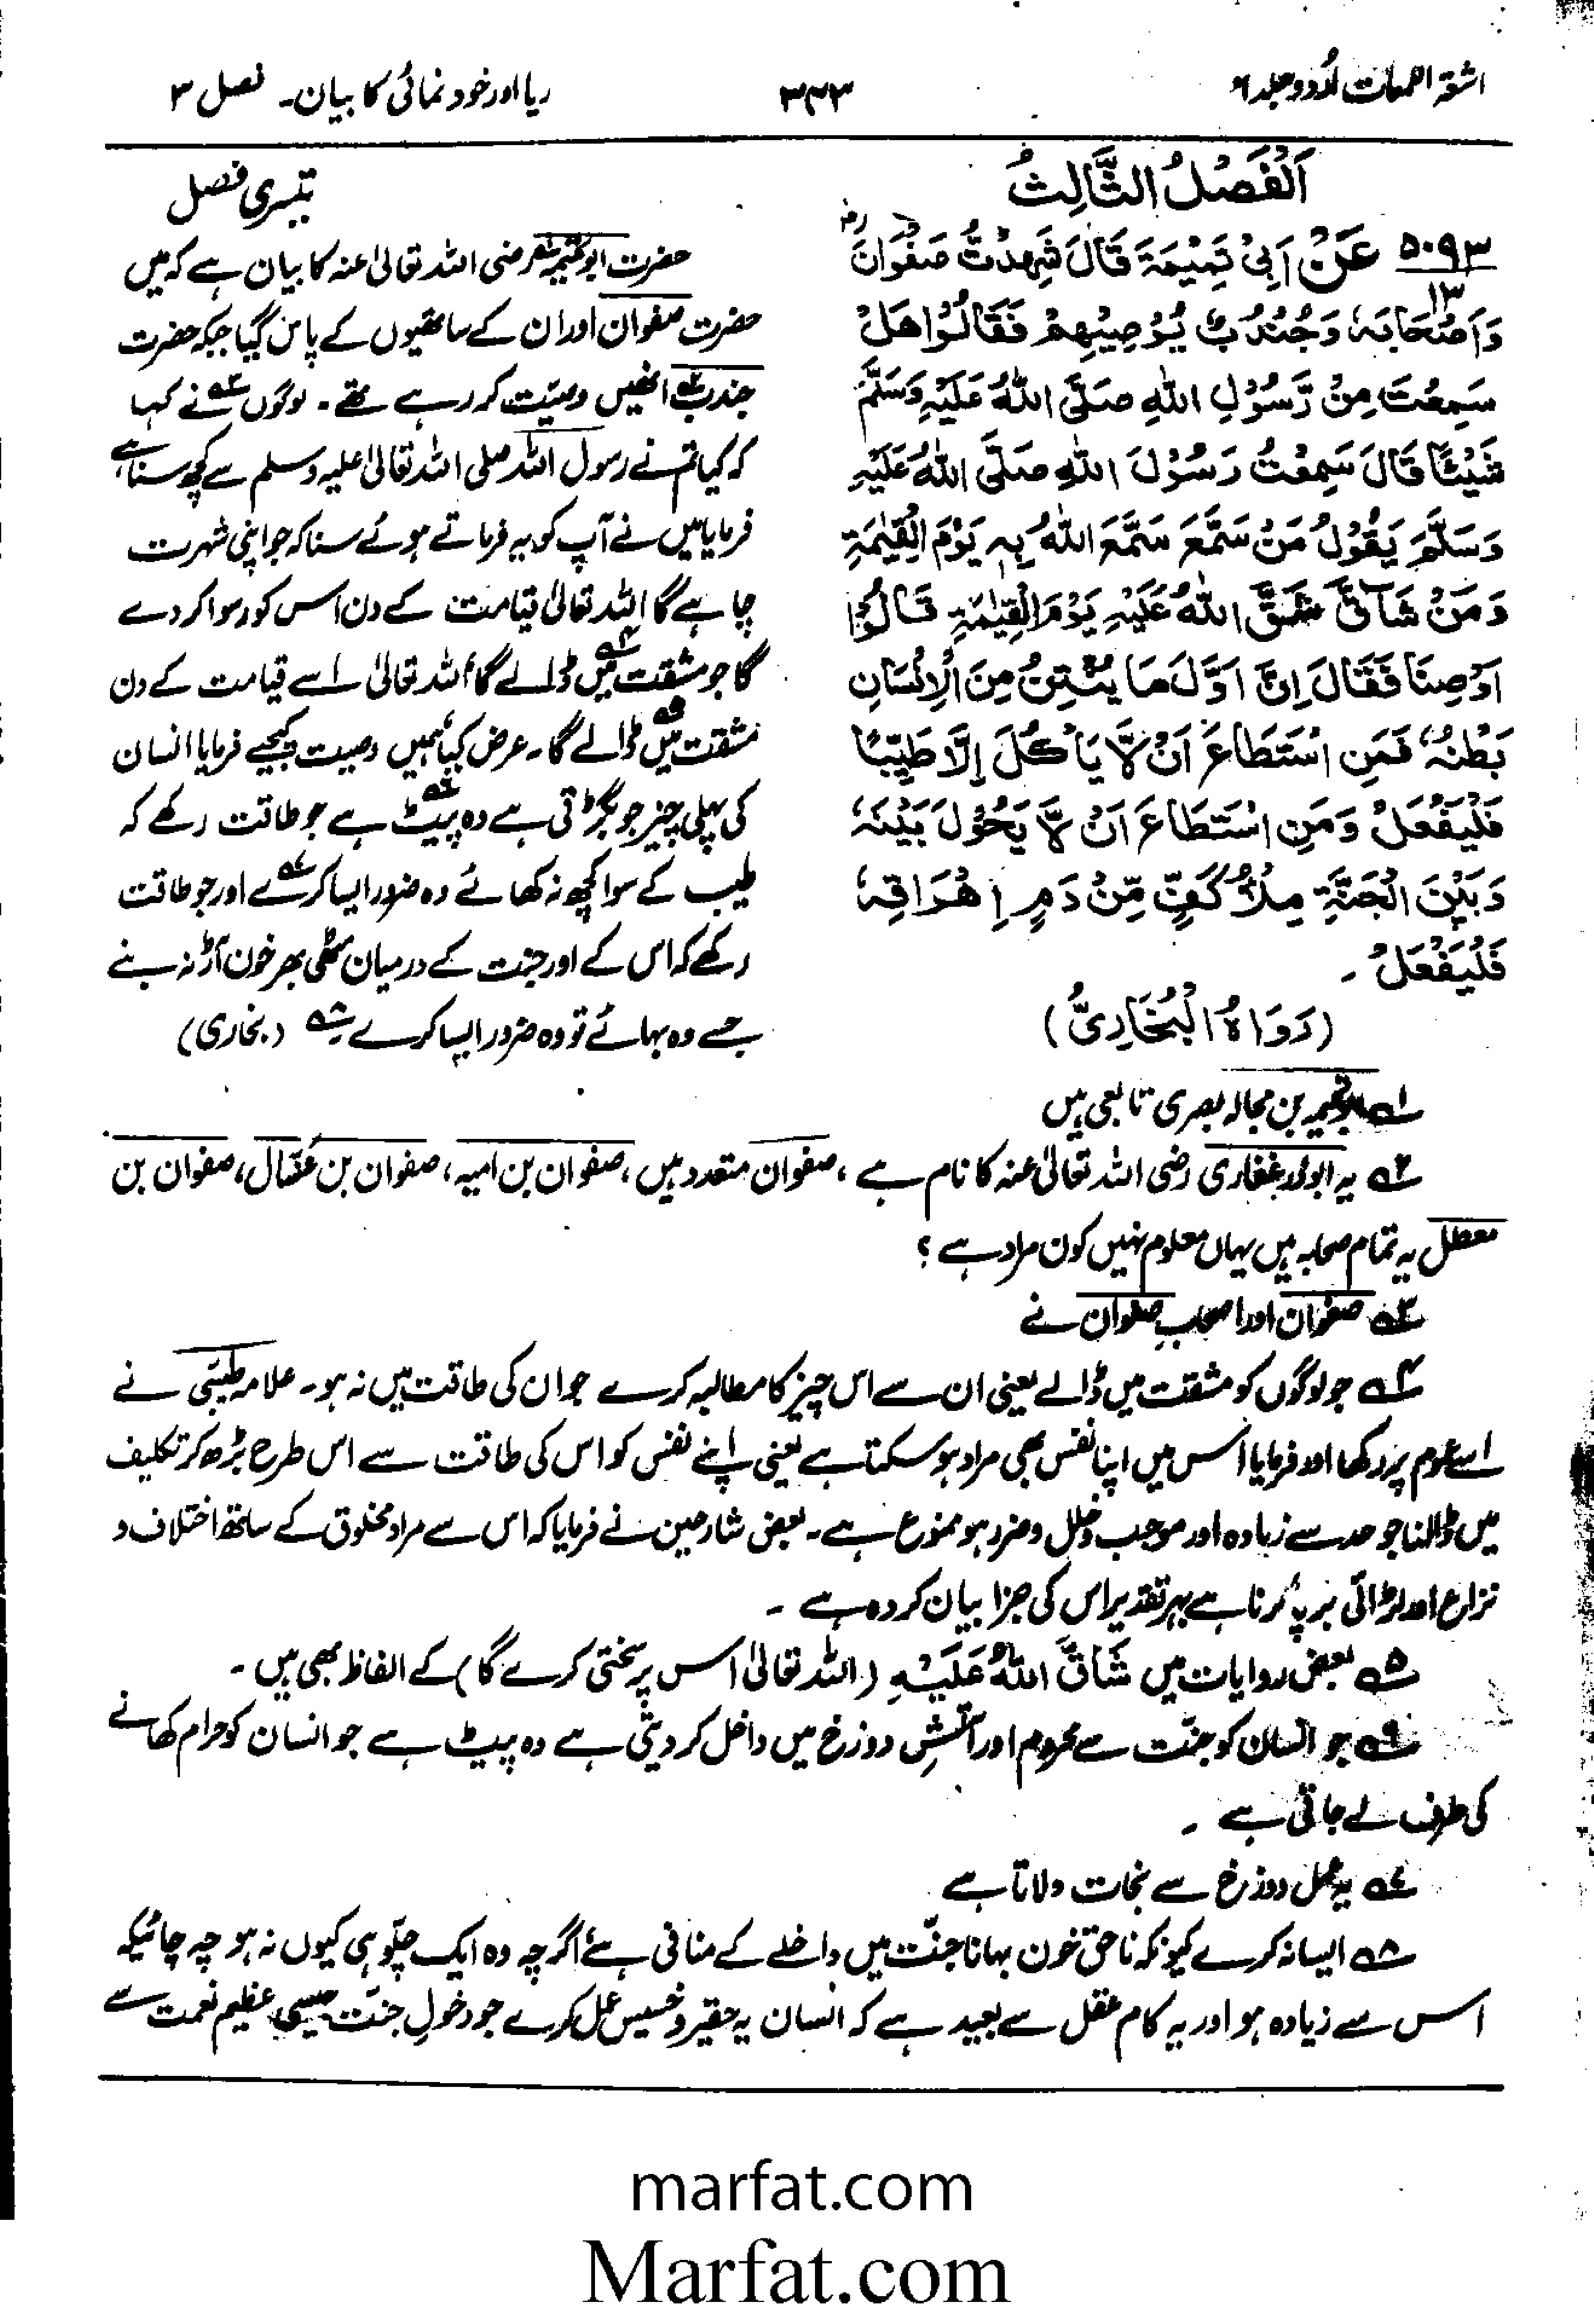 اشعۃ اللمعات اُردو جلد ۶
۳۳۳
ریا اور خود نمائی کا بیان۔ فصل ۳
اَلْفَصْلُ الثَّالِثُ
۵۰۹۳ عَنْ اَبِیْ تَمِیْمَۃَ قَالَ شَهِدْتُّ صَفْوَانَ
۱۳
وَاَصْحَابَہٗ وَجُنْدُبٌ یُوْصِیْهِمْ فَقَالُوْا هَلْ
سَمِعْتَ مِنْ رَّسُوْلِ اللهِ صَلَّی اللهُ عَلَیْهِ وَسَلَّمَ
شَیْئًا قَالَ سَمِعْتُ رَسُوْلَ اللهِ صَلَّی اللهُ عَلَیْهِ
وَسَلَّمَ یَقُوْلُ مَنْ سَمَّعَ سَمَّعَ اللهُ بِہٖ یَوْمَ الْقِیٰمَۃِ
وَمَنْ شَآقَّ شَقَّ اللهُ عَلَیْهِ یَوْمَ الْقِیٰمَۃِ قَالُوْا
اَوْصِنَا فَقَالَ اِنَّ اَوَّلَ مَا یُنْتِنُ مِنَ الْاِنْسَانِ
بَطْنُہٗ فَمَنِ اسْتَطَاعَ اَنْ لَّا یَاْکُلَ اِلَّا طَیِّبًا
فَلْیَفْعَلْ وَمَنِ اسْتَطَاعَ اَنْ لَّا یَحُوْلَ بَیْنَہٗ
وَبَیْنَ الْجَنَّۃِ مِلْأُ کَفٍّ مِّنْ دَمٍ اِهْرَاقَہٗ
فَلْیَفْعَلْ ۔
(رَوَاهُ الْبُخَارِیُّ)
تیسری فصل
حضرت ابوتمیمہ رضی اللہ تعالیٰ عنہ کا بیان ہے کہ میں
حضرت صفوان اور ان کے ساتھیوں کے پاس گیا جبکہ حضرت
جندب ۲؎ انھیں وصیّت کر رہے تھے ۔ لوگوں ۳؎ نے کہا
کہ کیا تم نے رسول اللہ صلی اللہ تعالیٰ علیہ وسلم سے کچھ سنا ہے
فرمایا میں نے آپ کو یہ فرماتے ہوئے سنا کہ جو اپنی شہرت
چاہے گا اللہ تعالیٰ قیامت کے دن اس کو رسوا کر دے
گا جو مشقت میں ۴؎ ڈالے گا اللہ تعالیٰ اسے قیامت کے دن
مشقت میں ۵؎ ڈالے گا ۔ عرض کیا ہمیں وصیت کیجیے فرمایا انسان
کی پہلی چیز جو بگڑتی ہے وہ پیٹ ۶؎ ہے جو طاقت رکھے کہ
طیب کے سوا کچھ نہ کھائے وہ ضرور ایسا کرے ۷؎ اور جو طاقت
رکھے کہ اس کے اور جنت کے درمیان مٹھی بھر خون آڑ نہ بنے
جسے وہ بہائے تو وہ ضرور ایسا کرے ۸؎ (بخاری)
۱؎ ابوتمیمہ بن مجالد بصری تابعی ہیں
۲؎ یہ ابوذر غفاری رضی اللہ تعالیٰ عنہ کا نام ہے ، صفوان متعدد ہیں ، صفوان بن امیہ ، صفوان بن عسّال ، صفوان بن
معطل یہ تمام صحابہ ہیں یہاں معلوم نہیں کون مراد ہے ؟
۳؎ صفوان اور اصحابِ صفوان نے
۴؎ جو لوگوں کو مشقت میں ڈالے یعنی ان سے اس چیز کا مطالبہ کرے جو ان کی طاقت میں نہ ہو ۔ علامہ طیبّی نے
اسے عموم پر رکھا اور فرمایا اس میں اپنا نفس بھی مراد ہو سکتا ہے یعنی اپنے نفس کو اس کی طاقت سے اس طرح بڑھ کر تکلیف
میں ڈالنا جو حد سے زیادہ اور موجب خلل و ضرر ہو ممنوع ہے ۔ بعض شارحین نے فرمایا کہ اس سے مراد مخلوق کے ساتھ اختلاف و
نزاع اور لڑائی برپا کرنا ہے بہر تقدیر اس کی جزا بیان کردہ ہے ۔
۵؎ بعض روایات میں شَاقَّ اللهُ عَلَیْهِ (اللہ تعالیٰ اس پر سختی کرے گا) کے الفاظ بھی ہیں ۔
۶؎ جو انسان کو جنّت سے محروم اور آتشِ دوزخ میں داخل کر دیتی ہے وہ پیٹ ہے جو انسان کو حرام کھانے
کی طرف لے جاتی ہے ۔
۷؎ یہ عمل دوزخ سے نجات دلاتا ہے
۸؎ ایسا نہ کرے کیونکہ ناحق خون بہانا جنّت میں داخلے کے منافی ہے اگرچہ وہ ایک چلّو ہی کیوں نہ ہو چہ جائیکہ
اس سے زیادہ ہو اور یہ کام عقل سے بعید ہے کہ انسان یہ حقیر و خسیس عمل کرے جو دخولِ جنّت جیسی عظیم نعمت سے
marfat.com
Marfat.com